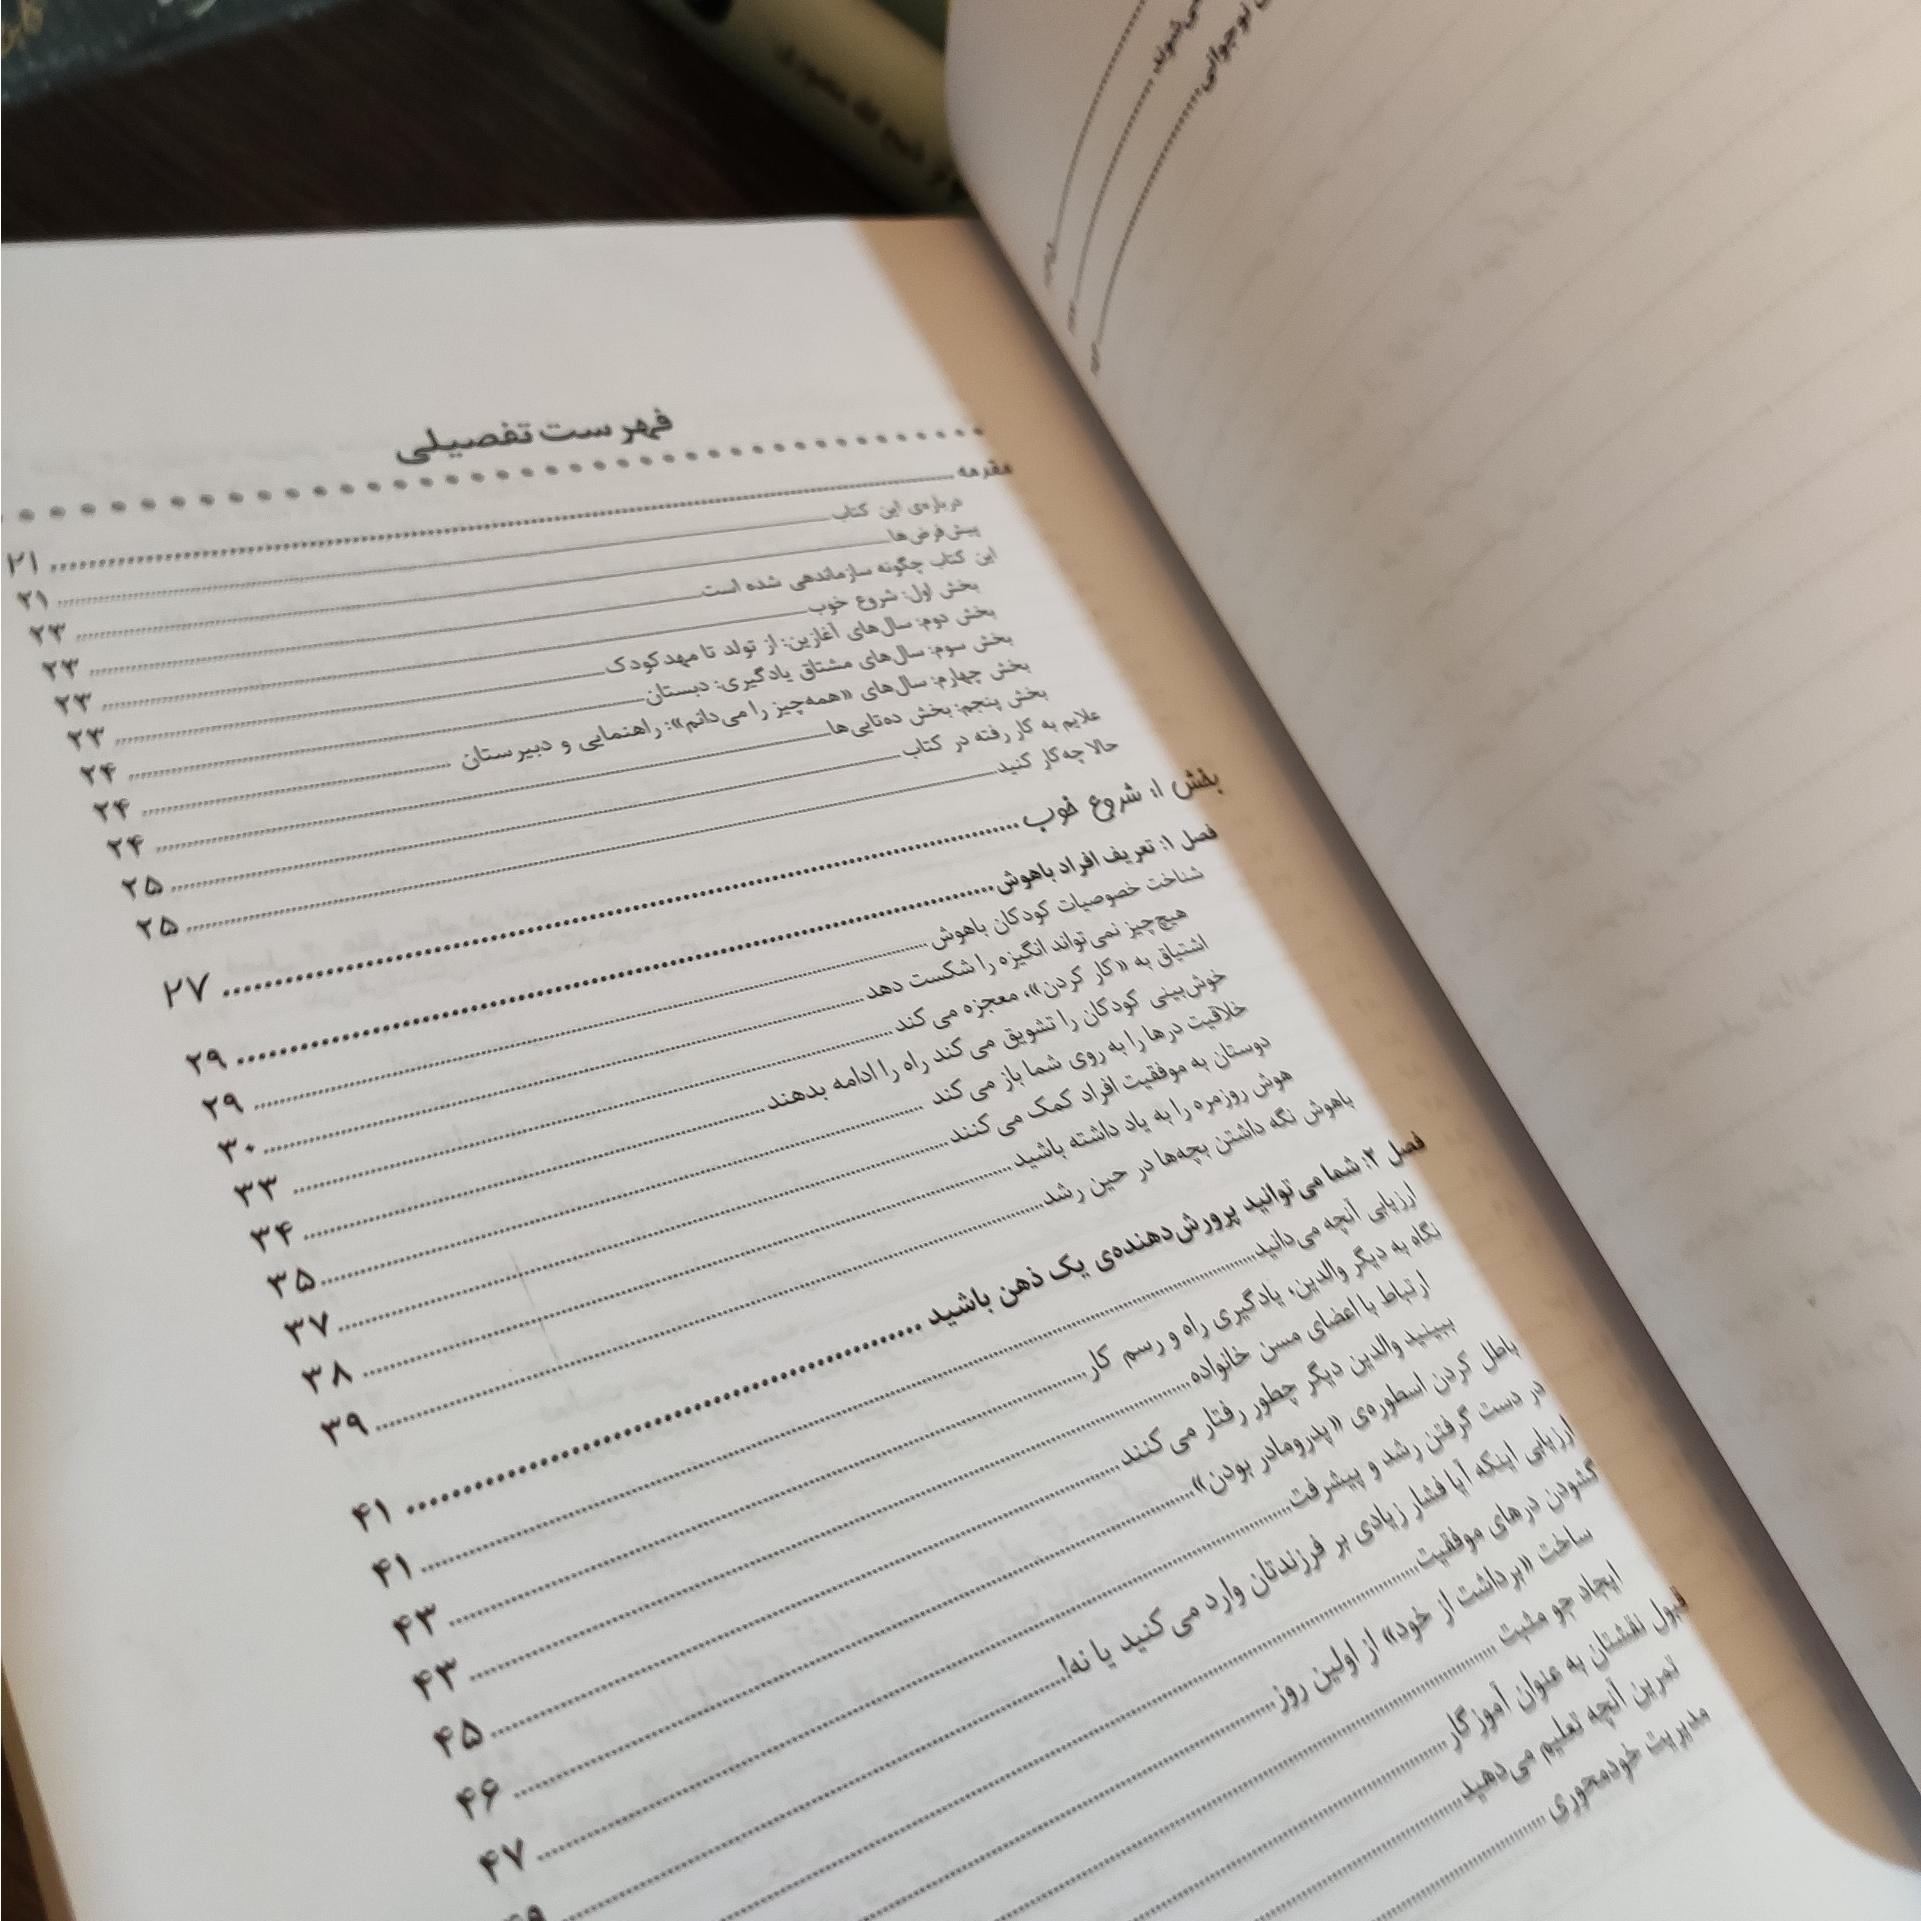 فهرست تفصیلی
مقدمه ........ ۲۱
درباره‌ی این کتاب ........ ۲۱
پیش‌فرض‌ها ........ ۲۳
این کتاب چگونه سازماندهی شده است ........ ۲۳
بخش اول: شروع خوب ........ ۲۳
بخش دوم: سال‌های آغازین: از تولد تا مهدکودک ........ ۲۳
بخش سوم: سال‌های مشتاق یادگیری: دبستان ........ ۲۴
بخش چهارم: سال‌های «همه‌چیز را می‌دانم»: راهنمایی و دبیرستان ........ ۲۴
بخش پنجم: بخش ده‌تایی‌ها ........ ۲۴
علایم به کار رفته در کتاب ........ ۲۵
حالا چه‌کار کنید ........ ۲۵
بخش ۱: شروع خوب ........ ۲۷
فصل ۱: تعریف افراد باهوش ........ ۲۹
شناخت خصوصیات کودکان باهوش ........ ۲۹
هیچ‌چیز نمی‌تواند انگیزه را شکست دهد ........ ۳۰
اشتیاق به «کار کردن»، معجزه می‌کند ........ ۳۳
خوش‌بینی کودکان را تشویق می‌کند راه را ادامه بدهند ........ ۳۴
خلاقیت درها را به روی شما باز می‌کند ........ ۳۵
دوستان به موفقیت افراد کمک می‌کنند ........ ۳۷
هوش روزمره را به یاد داشته باشید ........ ۳۸
باهوش نگه داشتن بچه‌ها در حین رشد ........ ۳۹
فصل ۲: شما می‌توانید پرورش‌دهنده‌ی یک ذهن باشید ........ ۴۱
ارزیابی آنچه می‌دانید ........ ۴۱
نگاه به دیگر والدین، یادگیری راه و رسم کار ........ ۴۳
ارتباط با اعضای مسن خانواده ........ ۴۳
ببینید والدین دیگر چطور رفتار می‌کنند ........ ۴۵
باطل کردن اسطوره‌ی «پدرومادر بودن» ........ ۴۶
در دست گرفتن رشد و پیشرفت ........ ۴۷
ارزیابی اینکه آیا فشار زیادی بر فرزندتان وارد می‌کنید یا نه!
گشودن درهای موفقیت
ساخت «برداشت از خود» از اولین روز
ایجاد جو مثبت
قبول نقشتان به عنوان آموزگار
تمرین آنچه تعلیم می‌دهید
مدیریت خودمحوری